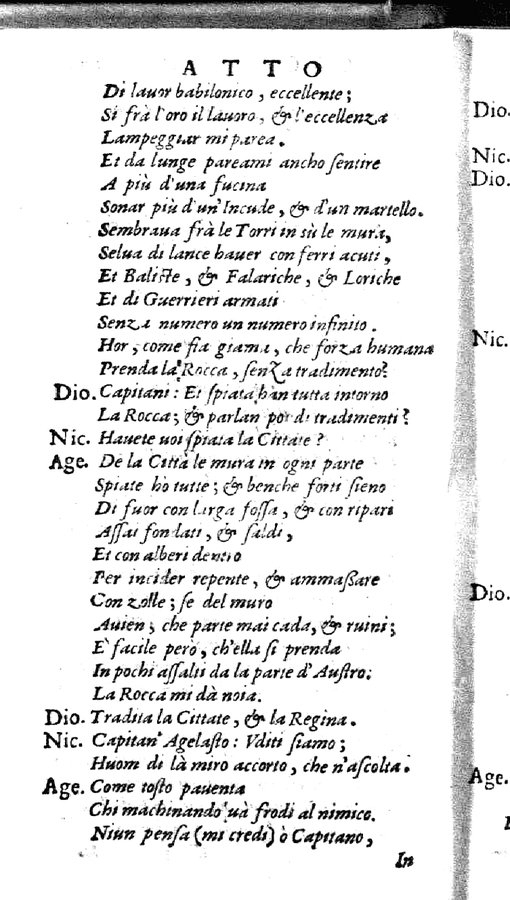 ATTO
Di lauor babilonico, eccellente;
Si frà l'oro il lauoro, & l'eccellenza
Lampeggiar mi parea.
Et da lunge pareami ancho ſentire
A più d'una fucina
Sonar più d'un' Incude, & d'un martello.
Sembraua frà le Torri in sù le mura,
Selua di lance hauer con ferri acuti,
Et Baliſte, & Falariche, & Loriche
Et di Guerrieri armati
Senza numero un numero infinito.
Hor, come fia giama, che forza humana
Prenda la Rocca, ſenza tradimento?
Dio. Capitani: Et ſpiata han tutta intorno
La Rocca; & parlan poi di tradimenti?
Nic. Hauete uoi ſpiata la Cittate?
Age. De la Città le mura in ogni parte
Spiate hò tutte; & benche forti ſieno
Di fuor con larga foſſa, & con ripari
Aſſai fondati, & ſaldi,
Et con alberi dentro
Per incider repente, & ammaßare
Con zolle; ſe del muro
Auien, che parte mai cada, & ruini;
E' facile però, ch'ella ſi prenda
In pochi aſſalti da la parte d'Auſtro:
La Rocca mi dà noia.
Dio. Tradita la Cittate, & la Regina.
Nic. Capitan' Agelaſto: Vditi ſiamo;
Huom di là miro accorto, che n'aſcolta.
Age. Come toſto pauenta
Chi machinando uà frodi al nimico.
Niun penſa (mi credi) ò Capitano,
In
Dio.
Nic.
Dio.
Nic.
Dio.
Age.